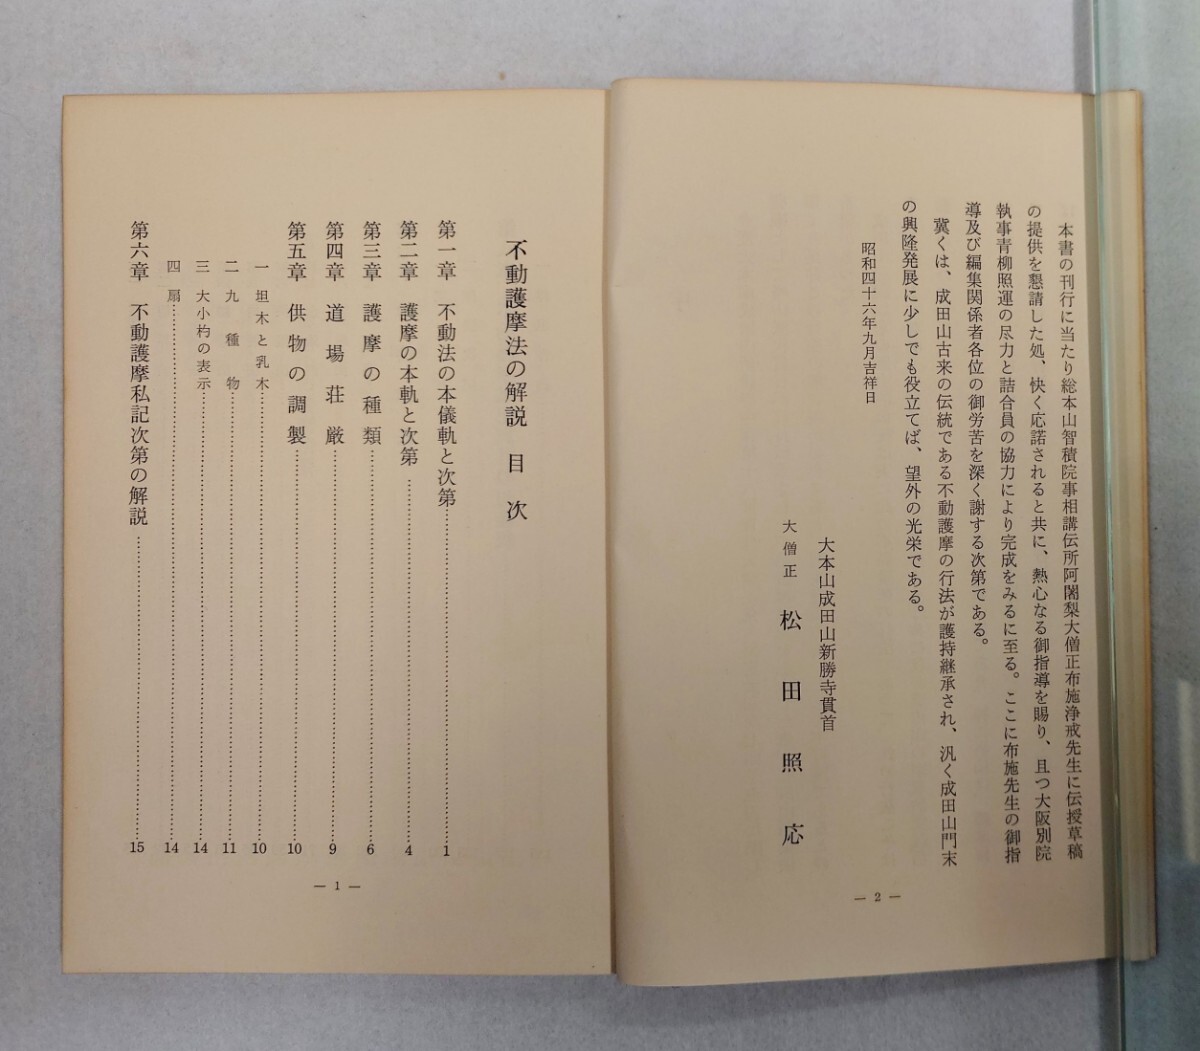 本書の刊行に当たり総本山智積院事相講伝所阿闍梨大僧正布施浄戒先生に伝授草稿
の提供を懇請した処、快く応諾されると共に、熱心なる御指導を賜り、且つ大阪別院
執事青柳照運の尽力と詰合員の協力により完成をみるに至る。ここに布施先生の御指
導及び編集関係者各位の御労苦を深く謝する次第である。
冀くは、成田山古来の伝統である不動護摩の行法が護持継承され、汎く成田山門末
の興隆発展に少しでも役立てば、望外の光栄である。
昭和四十六年九月吉祥日
大本山成田山新勝寺貫首
大僧正 松田照応
— 2 —
不動護摩法の解説 目次
第一章 不動法の本儀軌と次第…………1
第二章 護摩の本軌と次第…………4
第三章 護摩の種類…………6
第四章 道場荘厳…………9
第五章 供物の調製…………10
一 坦木と乳木…………10
二 九種物…………11
三 大小杓の表示…………14
四 扇…………14
第六章 不動護摩私記次第の解説…………15
— 1 —